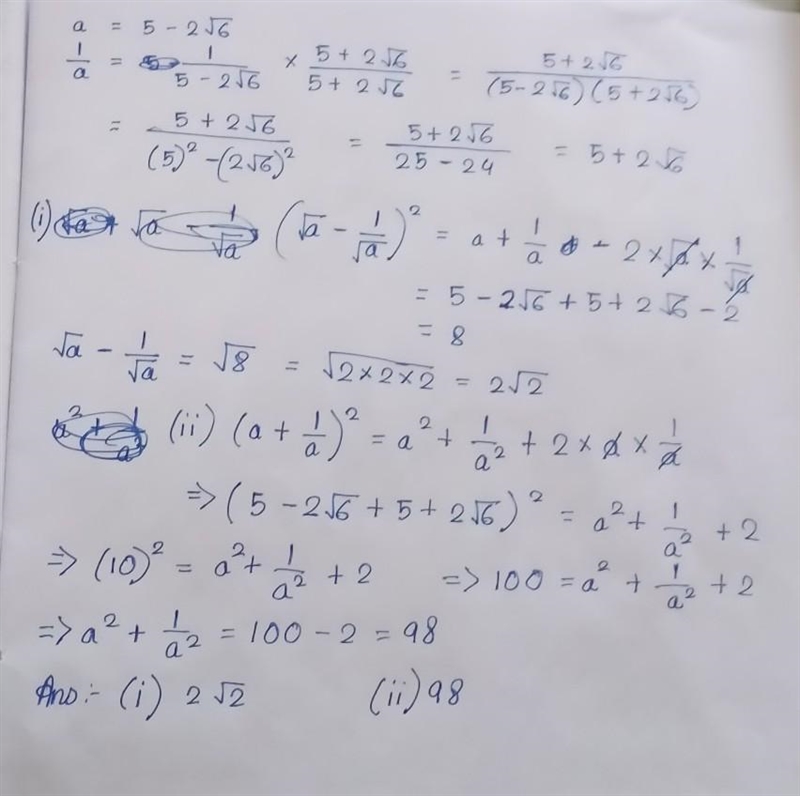 a = 5 - 2√6
1/a = 1/(5 - 2√6) × (5 + 2√6)/(5 + 2√6) = (5 + 2√6)/((5 - 2√6)(5 + 2√6))
= (5 + 2√6)/((5)² - (2√6)²) = (5 + 2√6)/(25 - 24) = 5 + 2√6
(i) (√a - 1/√a)² = a + 1/a - 2 × √a × 1/√a
= 5 - 2√6 + 5 + 2√6 - 2
= 8
√a - 1/√a = √8 = √(2×2×2) = 2√2
(ii) (a + 1/a)² = a² + 1/a² + 2 × a × 1/a
=> (5 - 2√6 + 5 + 2√6)² = a² + 1/a² + 2
=> (10)² = a² + 1/a² + 2 => 100 = a² + 1/a² + 2
=> a² + 1/a² = 100 - 2 = 98
Ans:- (i) 2√2 (ii) 98